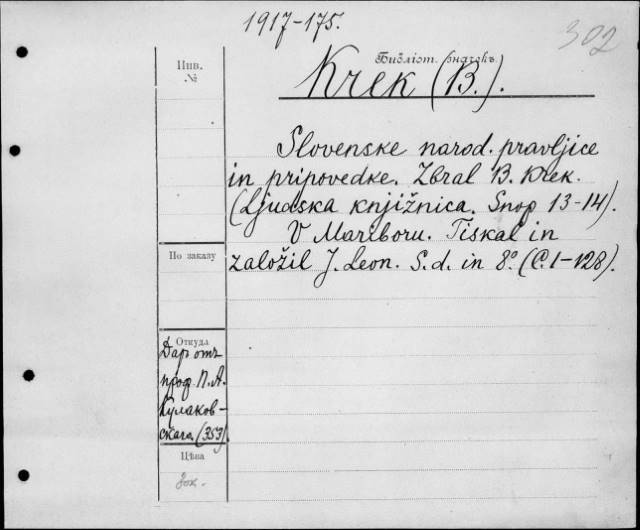 1917-175.
302
Инв. №
Библіот. значокъ.
Krek (B.).
Slovenske narod. pravljice
in pripovedke. Zbral B. Krek.
(Ljudska knjižnica. Snop 13-14).
V Mariboru. Tiskal in
založil J. Leon. S.d. in 8° (С. 1-128).
По заказу
Откуда
Даръ отъ
проф. П. А.
Кулаков-
скаго. (353).
Цѣна